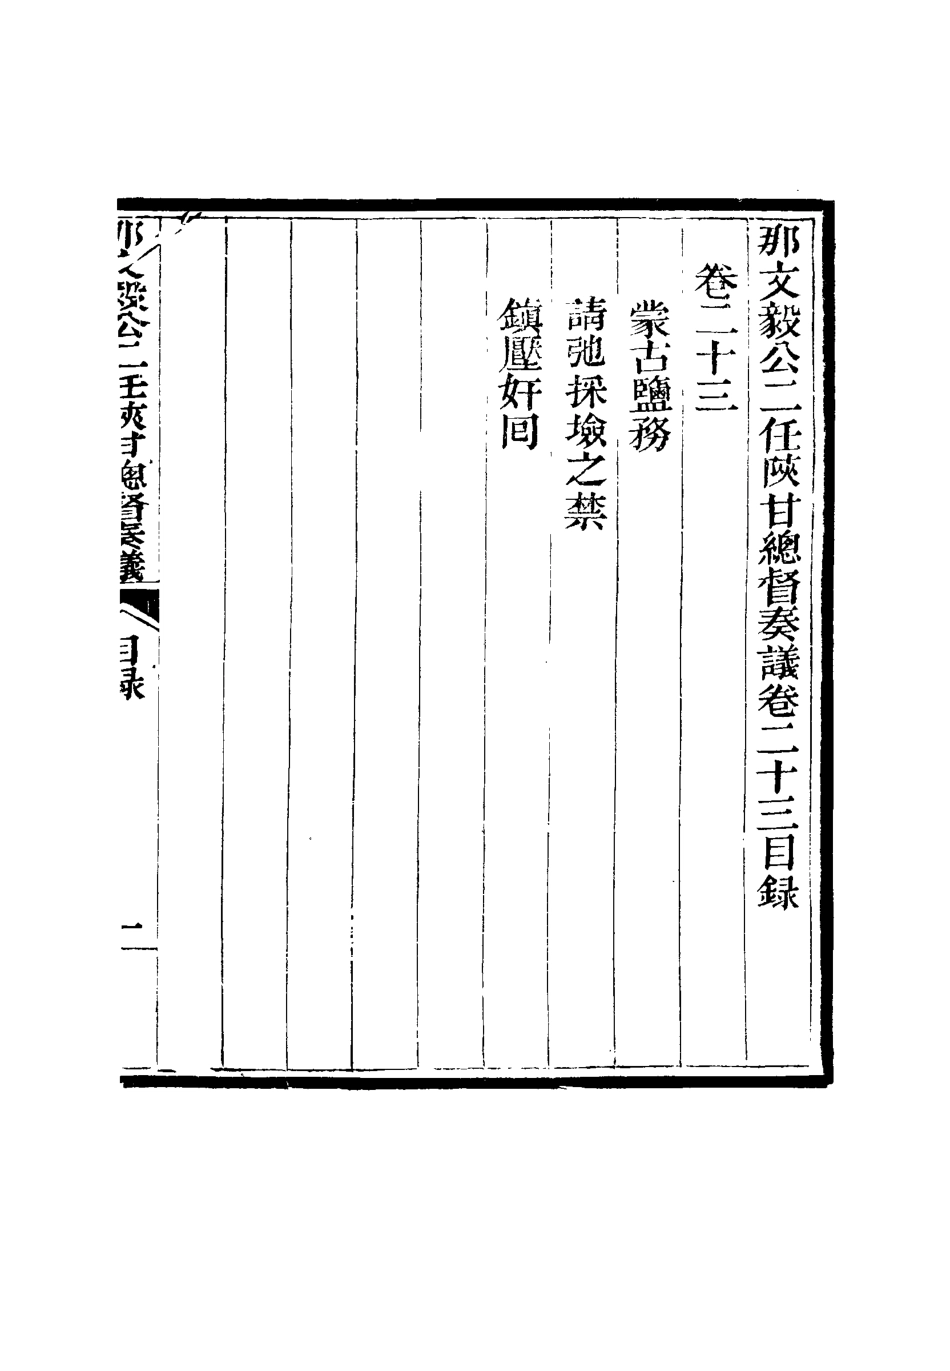 那文毅公二任陝甘總督奏議卷二十三目録
卷二十三
蒙古鹽務
請弛採壝之禁
鎮壓奸回
那文毅公二任陝甘總督奏議
目録
二